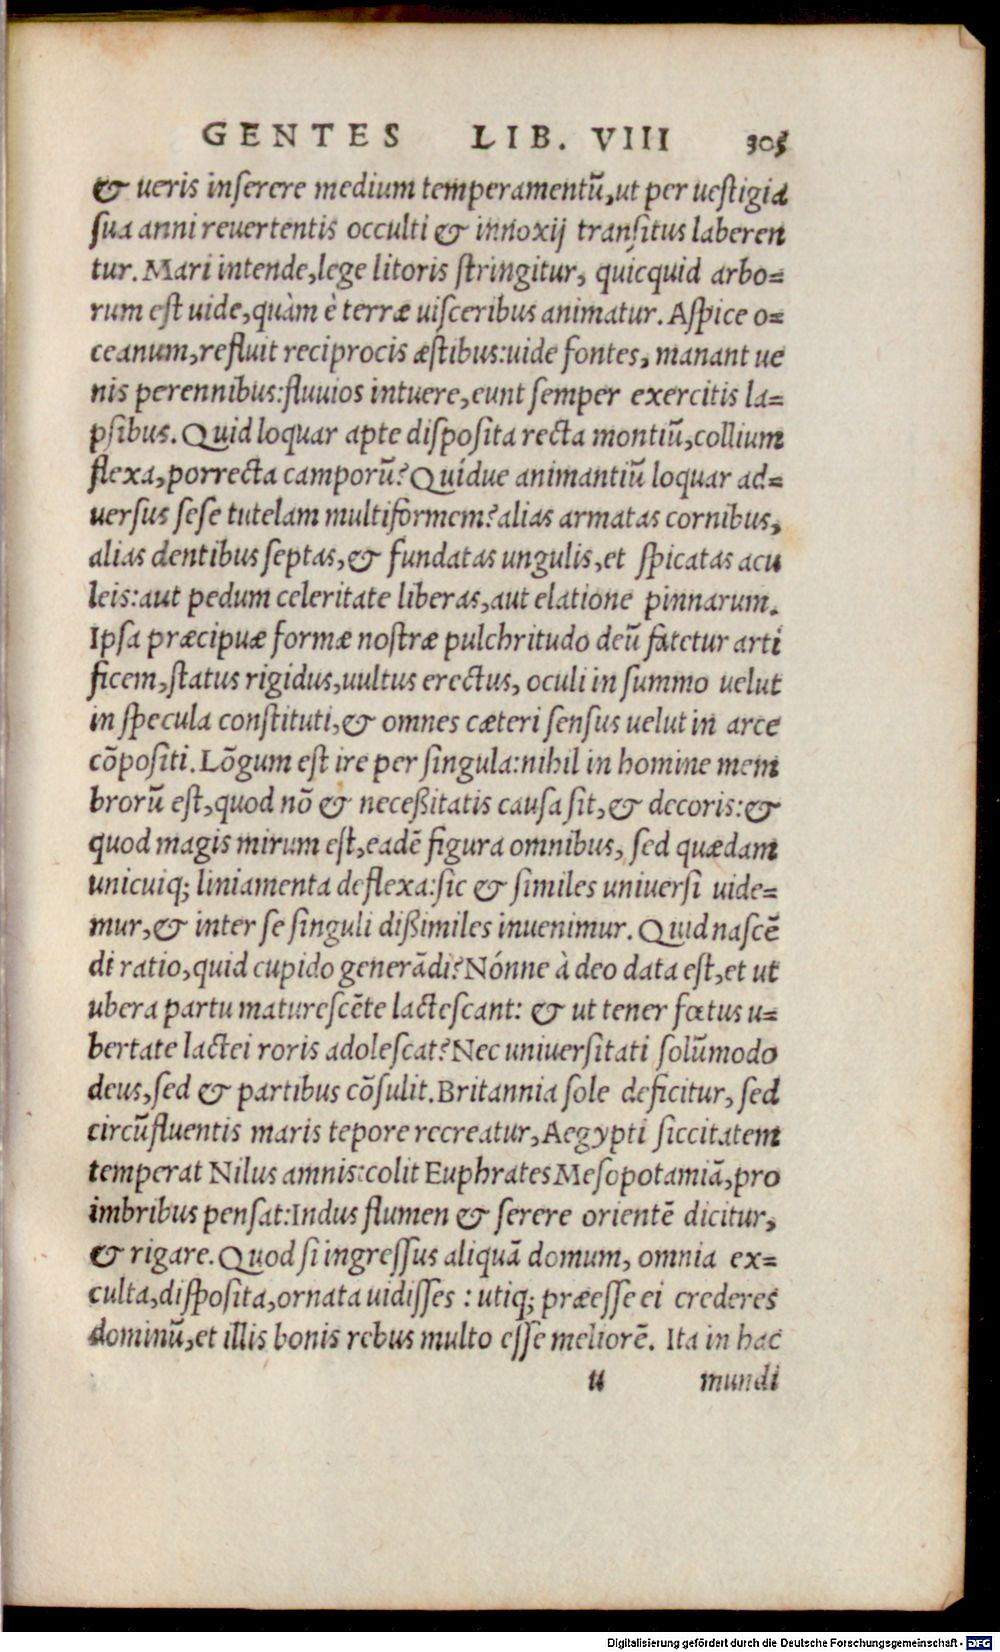 GENTES LIB. VIII 305
& ueris inserere medium temperamentũ, ut per uestigia
sua anni reuertentis occulti & innoxij transitus laberen
tur. Mari intende, lege litoris stringitur, quicquid arbo=
rum est uide, quàm è terræ uisceribus animatur. Aspice o=
ceanum, refluit reciprocis æstibus: uide fontes, manant ue
nis perennibus: fluuios intuere, eunt semper exercitis la=
psibus. Quid loquar apte disposita recta montiũ, collium
flexa, porrecta camporũ? Quidue animantiũ loquar ad=
uersus sese tutelam multiformem? alias armatas cornibus,
alias dentibus septas, & fundatas ungulis, et spicatas acu
leis: aut pedum celeritate liberas, aut elatione pinnarum.
Ipsa præcipuæ formæ nostræ pulchritudo deũ fatetur arti
ficem, status rigidus, uultus erectus, oculi in summo uelut
in specula constituti, & omnes cæteri sensus uelut in arce
cõpositi. Lõgum est ire per singula: nihil in homine mem
brorũ est, quod nõ & neceßitatis causa sit, & decoris: &
quod magis mirum est, eadẽ figura omnibus, sed quædam
unicuiq; liniamenta deflexa: sic & similes uniuersi uide=
mur, & inter se singuli dißimiles inuenimur. Quid nascẽ
di ratio, quid cupido generãdi? Nónne à deo data est, et ut
ubera partu maturescẽte lactescant: & ut tener fœtus u=
bertate lactei roris adolescat? Nec uniuersitati solũmodo
deus, sed & partibus cõsulit. Britannia sole deficitur, sed
circũfluentis maris tepore recreatur, Aegypti siccitatem
temperat Nilus amnis: colit Euphrates Mesopotamiã, pro
imbribus pensat: Indus flumen & serere orientẽ dicitur,
& rigare. Quod si ingressus aliquã domum, omnia ex=
culta, disposita, ornata uidisses: utiq; præesse ei crederes
dominũ, et illis bonis rebus multo esse meliorẽ. Ita in hac
u mundi
Digitalisierung gefördert durch die Deutsche Forschungsgemeinschaft - DFG